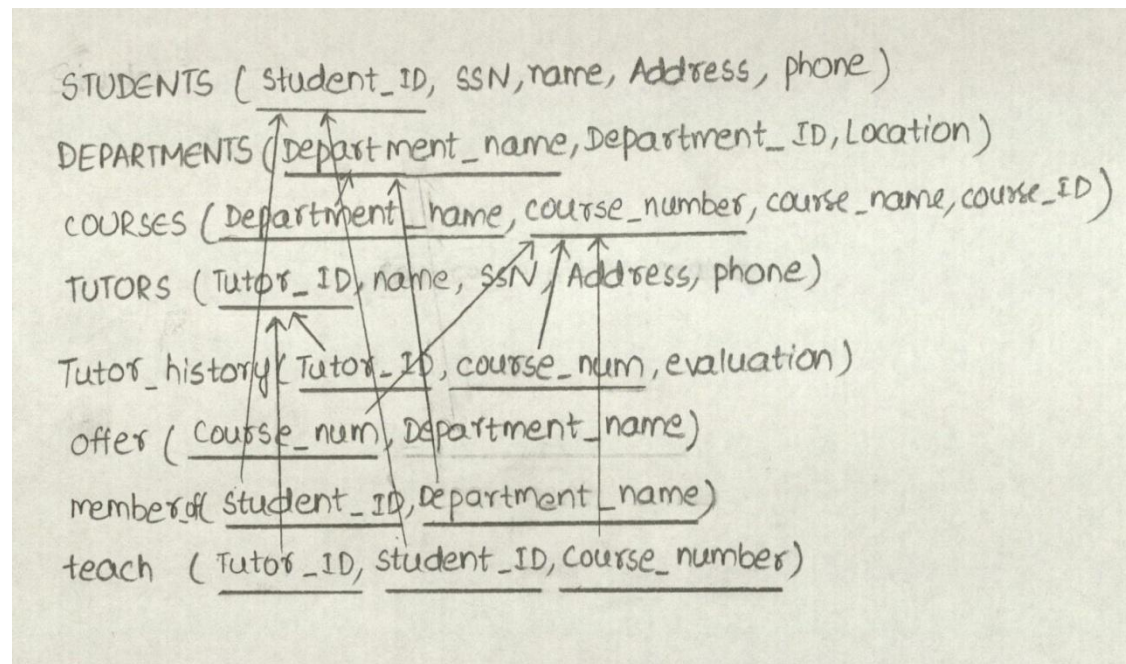 STUDENTS ( Student_ID, SSN, name, Address, phone )
DEPARTMENTS ( Department_name, Department_ID, Location )
COURSES ( Department_name, course_number, course_name, course_ID )
TUTORS ( Tutor_ID, name, SSN, Address, phone )
Tutor_history ( Tutor_ID, course_num, evaluation )
offer ( Course_num, Department_name )
member_of ( Student_ID, Department_name )
teach ( Tutor_ID, Student_ID, Course_number )